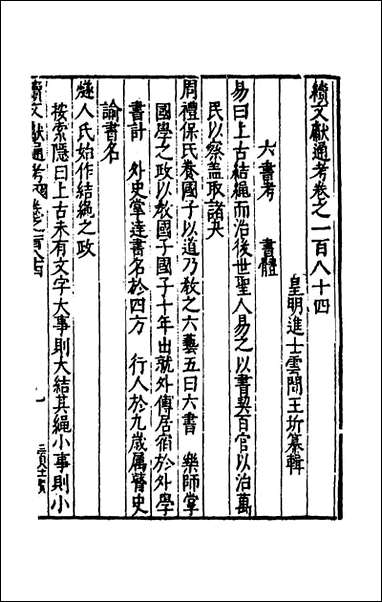 續文獻通考卷之一百八十四
皇明進士雲間王圻纂輯
六書考　書體
易曰上古結繩而治後世聖人易之以書契百官以治萬
民以察蓋取諸夬
周禮保氏養國子以道乃敎之六藝五曰六書　樂師掌
國學之政以敎國子國子十年出就外傳居宿於外學
書計　外史掌達書名於四方　行人於九歲属瞽史
諭書名
燧人氏始作結繩之政
按索隱曰上古未有文字大事則大結其繩小事則小
續文獻通考卷之一百八十四